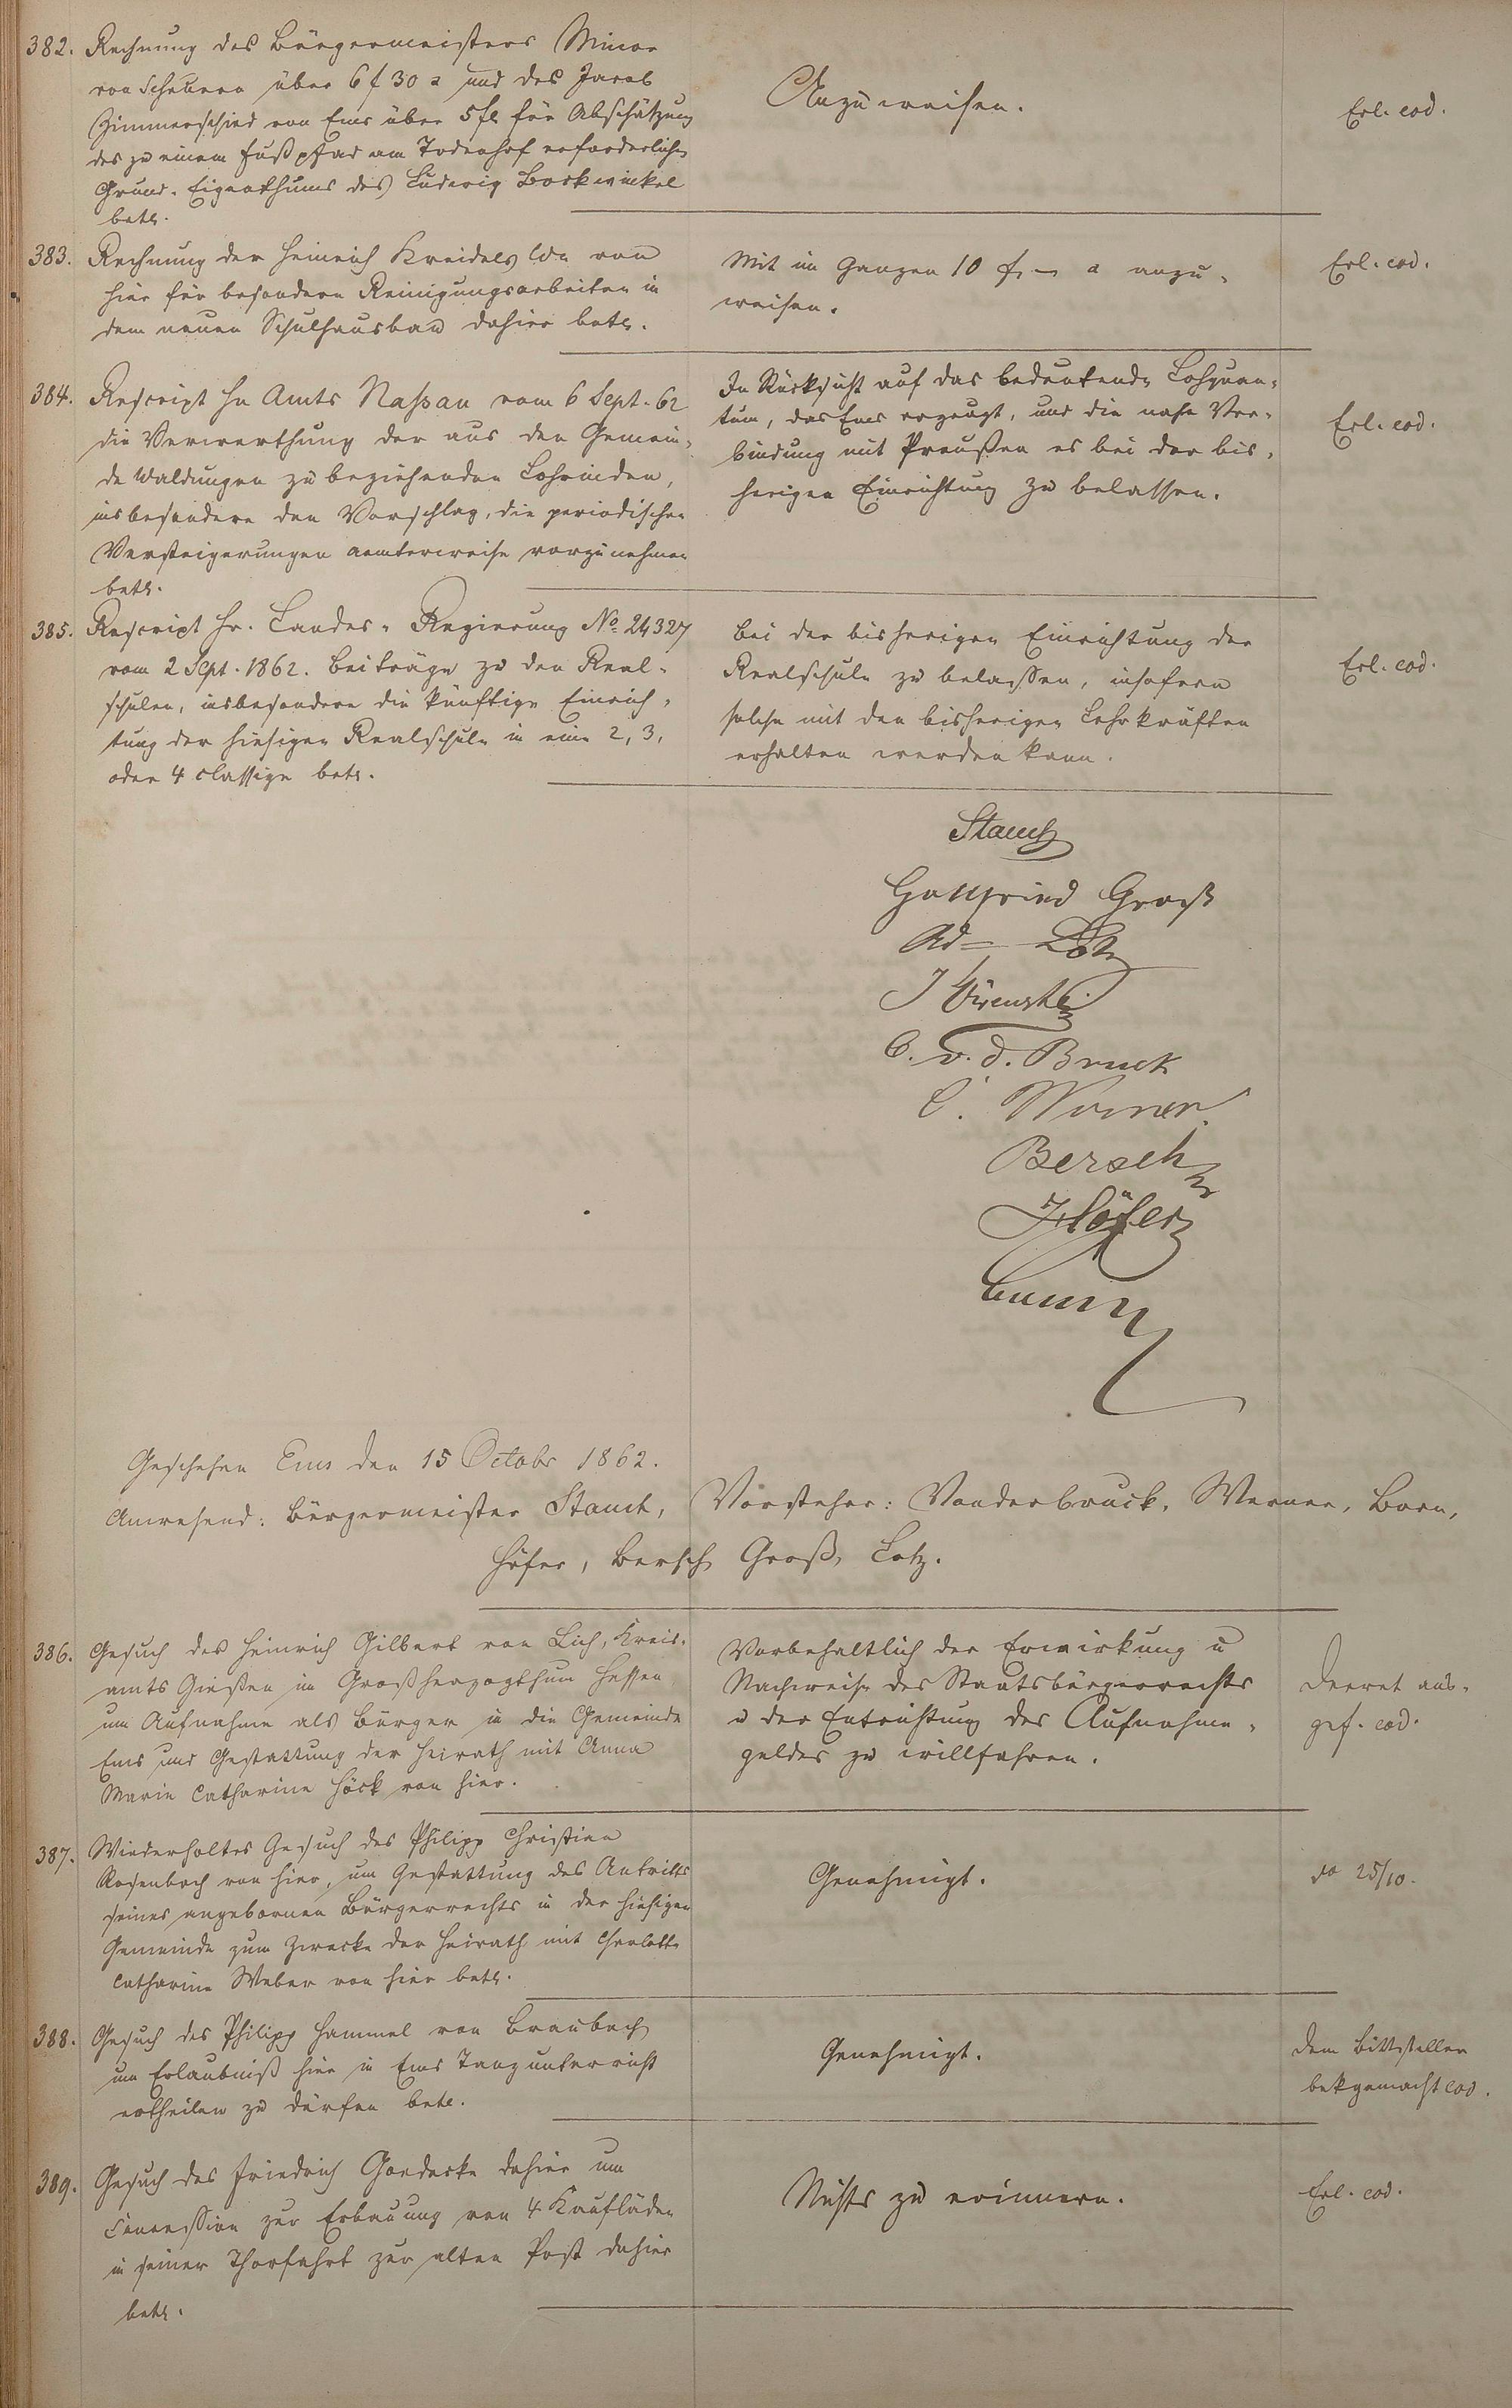 382. Rechnung des Bürgermeisters Minor
von Scheuern über 6 f 30 x und des Jacob
Zimmerschied von Ems über 5 fl für Abschätzung
des zu einem Fußpfad am Todenhof erforderlichen
Grund-Eigenthums des Ludwig Bockwinkel
betr.
Anzuweisen.
Erl. eod.
383. Rechnung der Heinrich Kreidels We von
hier für besondere Reinigungsarbeiten in
dem neuen Schulhausbau dahier betr.
Mit im Ganzen 10 f – x anzu-
weisen.
Erl. eod.
384. Rescript Hn Amts Nassau vom 6 Sept. 62
die Verwerthung der aus den Gemein-
de Waldungen zu beziehenden Lohrinden,
insbesondere den Vorschlag, die periodischen
Versteigerungen aemterweise vorzunehmen
betr.
In Rücksicht auf das bedeutende Lohquan-
tum, das Ems erzeugt, und die nahe Ver-
bindung mit Preußen es bei der bis-
herigen Einrichtung zu belassen.
Erl. eod.
385. Rescript Hr. Landes-Regierung No 24327
vom 2 Sept. 1862. Beiträge zu den Real-
schulen, insbesondere die künftige Einrich-
tung der hiesigen Realschule in eine 2, 3,
oder 4 classige betr.
Bei der bisherigen Einrichtung der
Realschule zu belassen, insofern
solche mit den bisherigen Lehrkräften
erhalten werden kann.
Erl. eod.
Stauch
Gottfried Groß
Ad Lotz
C. v. d. Bruck
C. Werner
Bersch
Höfer
Geschehen Ems den 15 Octobr 1862.
Anwesend: Bürgermeister Stauch, Vorsteher: Vonderbruck, Werner, Born,
Höfer, Bersch, Groß, Lotz.
386. Gesuch des Heinrich Gilbert von Lich, Kreis-
amts Gießen im Großherzogthum Hessen,
um Aufnahme als Bürger in die Gemeinde
Ems und Gestattung der Heirath mit Anna
Marie Catharine Höck von hier.
Vorbehaltlich der Erwirkung u
Nachweise des Staatsbürgerrechts
u der Entrichtung des Aufnahme-
geldes zu willfahren.
Decret aus-
gef. eod.
387. Wiederholtes Gesuch des Philipp Christian
Rosenbach von hier, um Gestattung des Antritts
seines angebornen Bürgerrechts in der hiesigen
Gemeinde zum Zwecke der Heirath mit Charlotte
Catharine Weber von hier betr.
Genehmigt.
do 25/10.
388. Gesuch des Philipp Hammel von Braubach
um Erlaubniß hier in Ems Tanzunterricht
ertheilen zu dürfen betr.
Genehmigt.
dem Bittsteller
bekgemacht eod.
389. Gesuch des Friedrich Goedecke dahier um
Concession zur Erbauung von 4 Kaufläden
in seiner Thorfahrt zur alten Post dahier
betr.
Nichts zu erinnern.
Erl. eod.